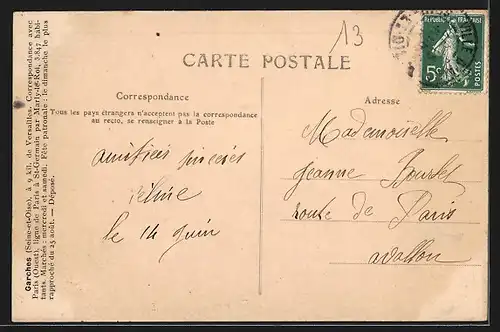 13
CARTE POSTALE
RÉPUBLIQUE FRANÇAISE
5c
POSTES
Correspondance
Tous les pays étrangers n'acceptent pas la correspondance
au recto, se renseigner à la Poste
Adresse
amitiés sincères
le 14 Juin
Mademoiselle
Jeanne
route de Paris
Avallon
Garches (Seine-et-Oise), à 9 kil. de Versailles. Correspondance avec
Paris (Ouest), ligne de Paris à St-Germain par Marly-le-Roi, 2.847 habi-
tants. Marchés : mercredi et samedi. Fête patronale : le dimanche le plus
rapproché du 25 août. — Déposé.